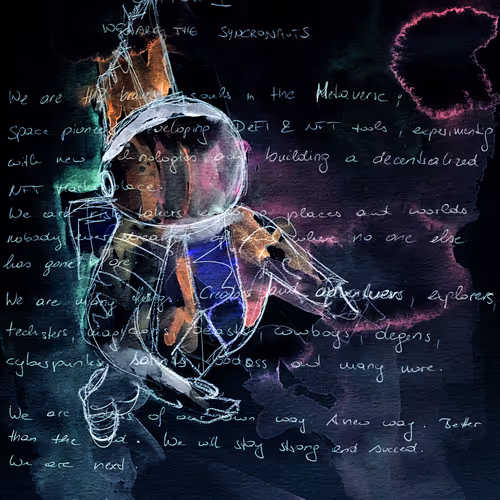 WE ARE THE SYNCRONAUTS
We are the bravest souls in the Metaverse;
Space pioneers developing DeFi & NFT tools, experimenting
with new technologies and building a decentralized
NFT marketplace.
We are risk takers places and worlds
nobody where no one else
has gone
We are many things. Creators and adventurers, explorers,
techsters, magicians, beasts, cowboys, degens,
cyberpunks, and many more.
We are of our own way. A new way. Better
than the old. We will stay strong and succeed.
We are next.